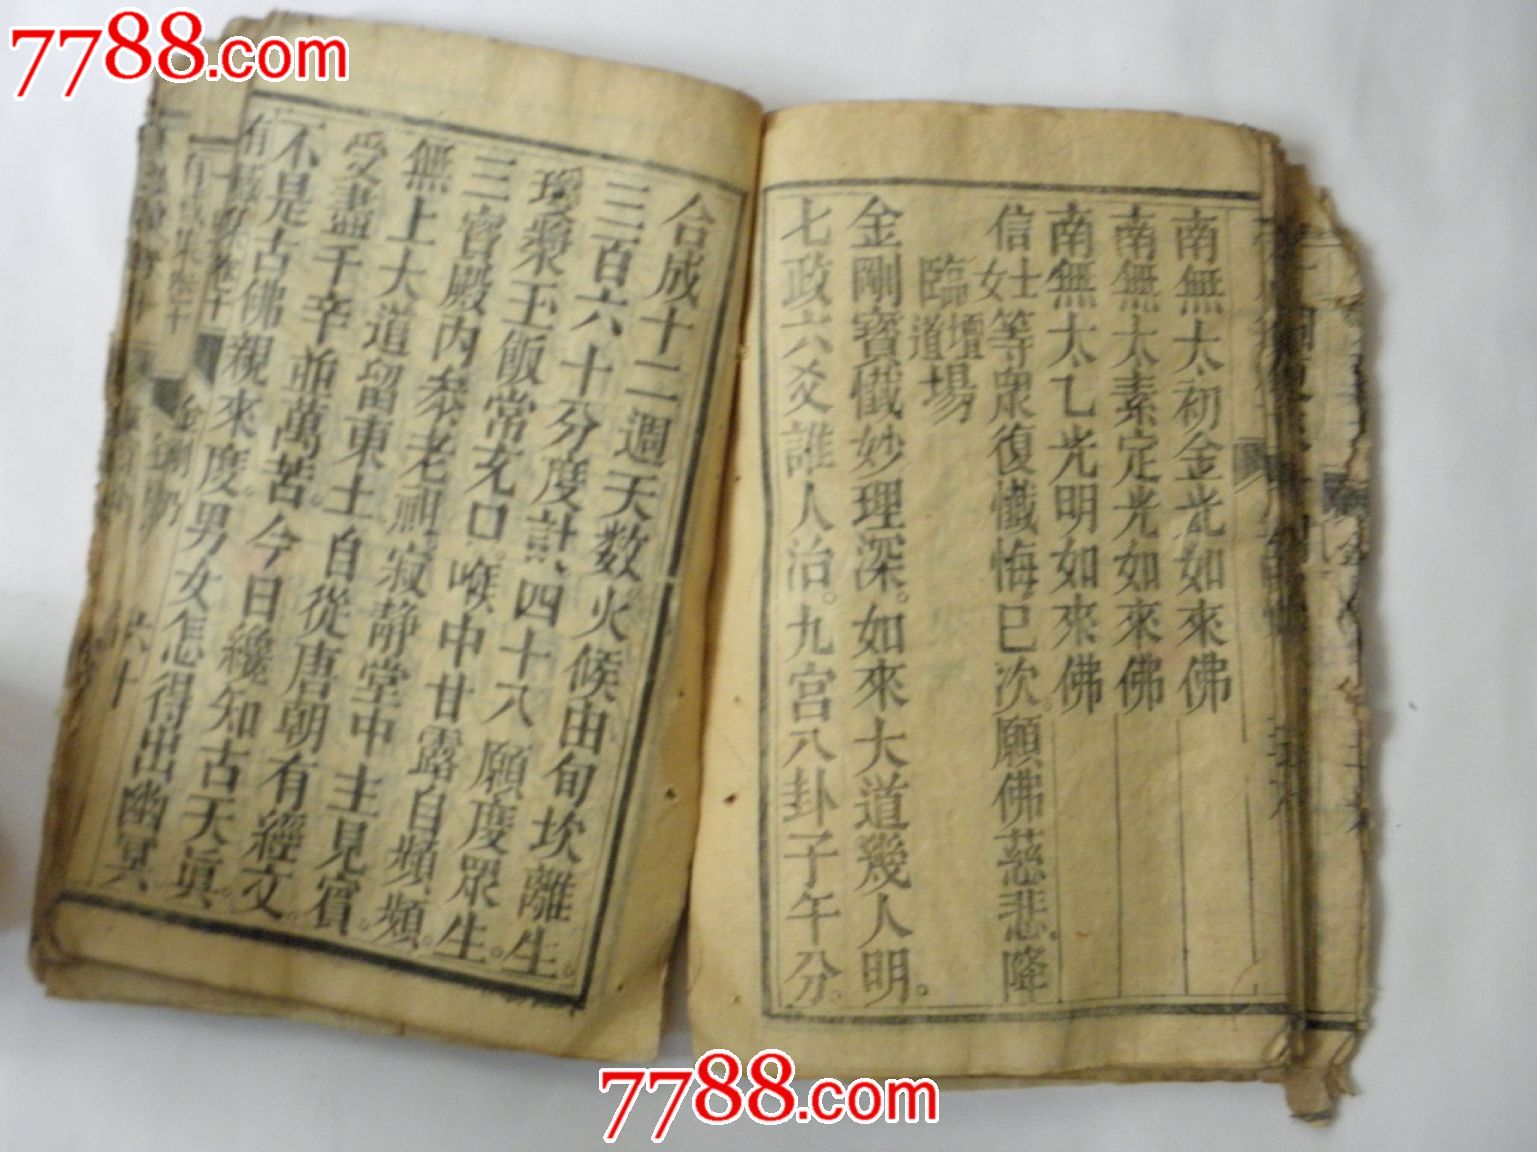 7788.com
南無太初金光如來佛
南無太素定光如來佛
南無太乙光明如來佛
信士女等衆復懺悔已次願佛慈悲降
臨壇道場
金剛寶懺妙理深。如來大道幾人明。
七政六爻誰人治。九宮八卦子午分。
合成十二週天数。火候由旬坎離生。
三百六十分度計。四十八願度眾生。
瓊漿玉飯常充口。喉中甘露自頻頻。
三寶殿内叅老祖。寂静堂中主見賓。
無上大道留東土。自從唐朝有經文
受盡千辛並萬苦。今日纔知古天真。
不是古佛親來度。男女怎得出幽冥
卷十
金剛
六十
7788.com